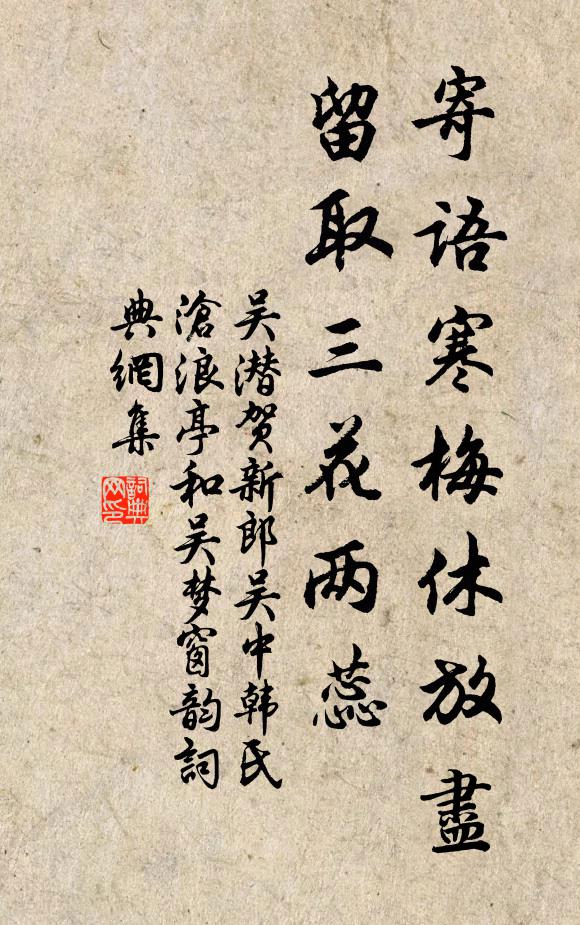 寄语寒梅休放盡
留取三花两蕊
吴潜贺新郎吴中韩氏
滄浪亭和吴梦窗韵詞
典網集
詞典
网印